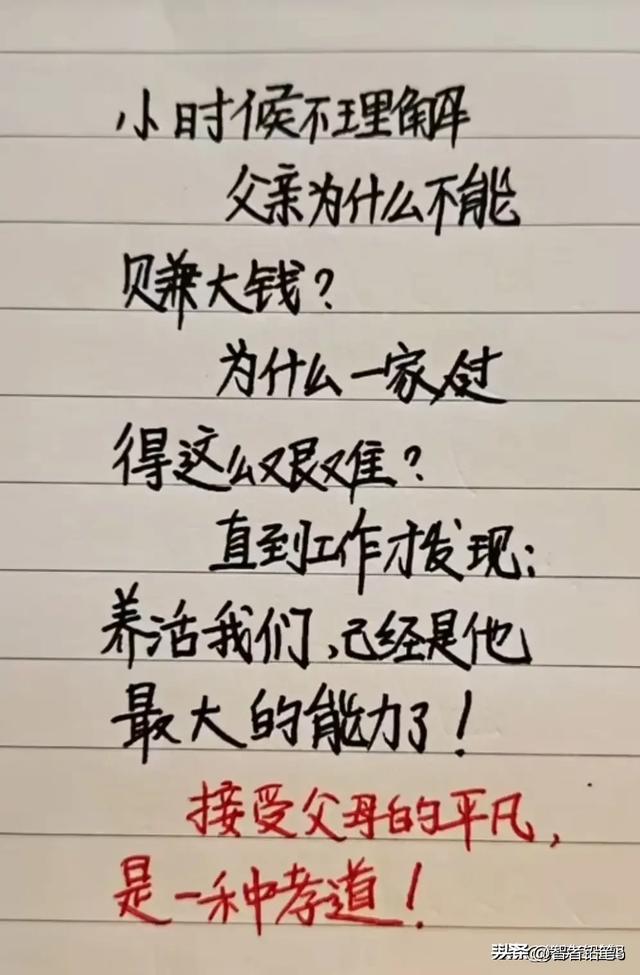 小时候不理解
父亲为什么不能
赚大钱？
为什么一家人过
得这么艰难？
直到工作才发现：
养活我们，已经是他
最大的能力了！
接受父母的平凡，
是一种孝道！
头条@智者铅笔